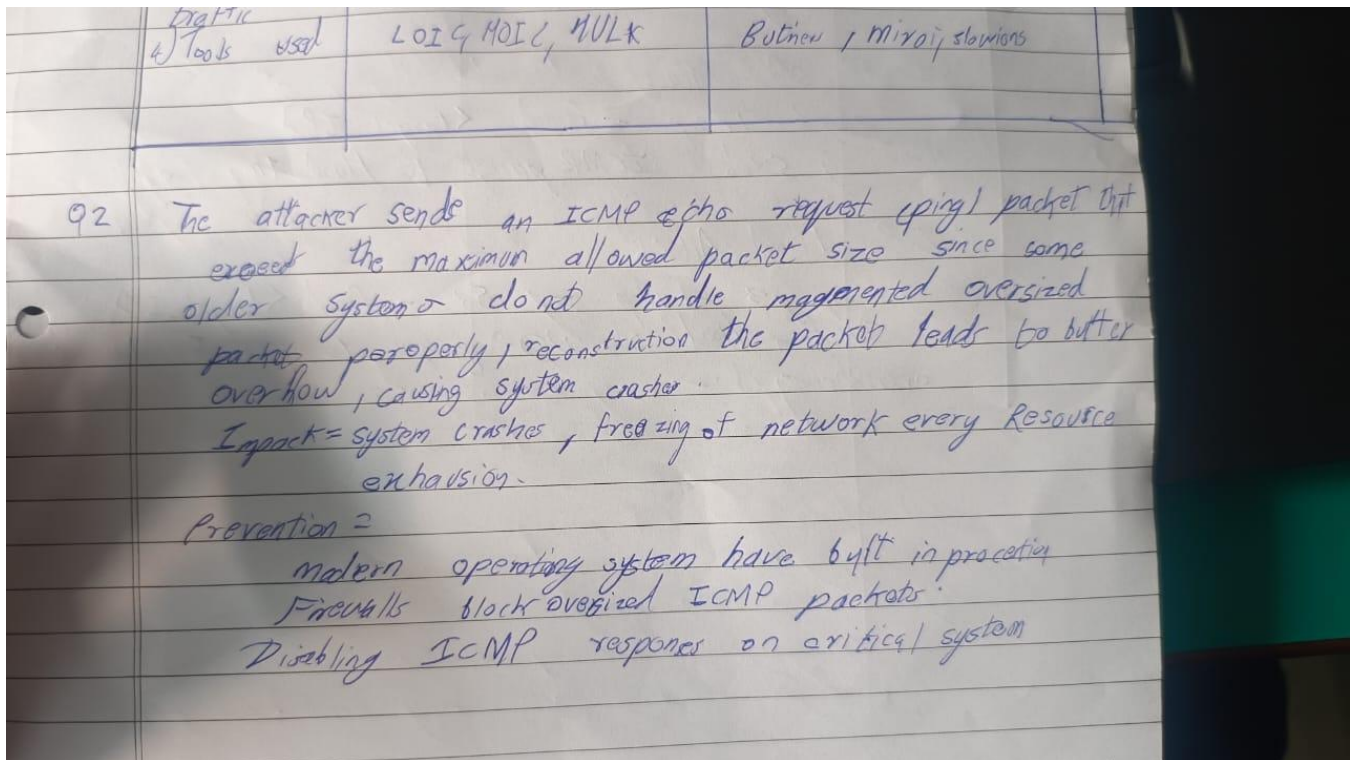 traffic
4) Tools used LOIC, HOIC, HULK Butnew, miroi, slowions
Q2 The attacker sends an ICMP echo request (ping) packet that
exceed the maximun allowed packet size since some
older systems do not handle magmented oversized
packet poroperly, reconstruction the packet leads to buffer
overflow, causing system crasher.
Impack = system crashes, freezing of network every Resource
exhausion.
Prevention =
modern operating system have built in procetion
Firewalls block oversized ICMP packets.
Disabling ICMP respones on critical system